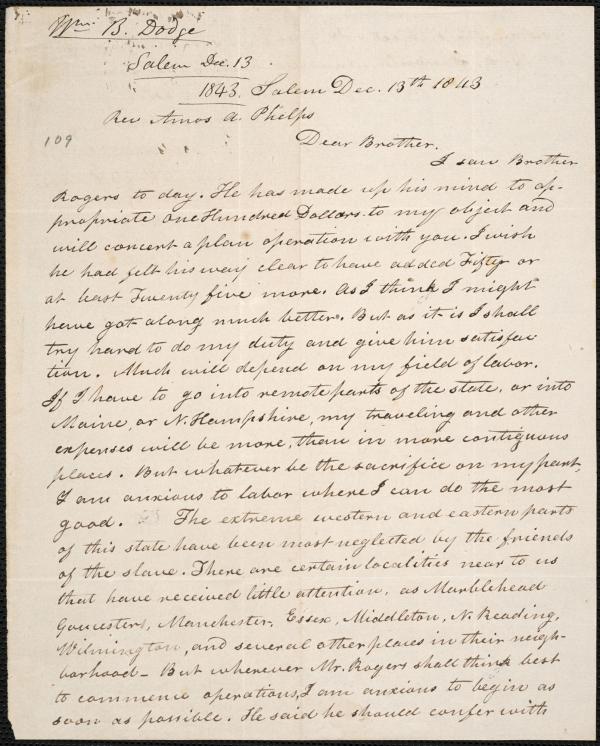 Wm B. Dodge
Salem Dec. 13
1843. Salem Dec. 13th 1843
Rev Amos A. Phelps
109
Dear Brother.
I saw Brother
Rogers to day. He has made up his mind to ap-
propriate one Hundred Dollars to my object and
will concert a plan operation with you. I wish
he had felt his way clear to have added Fifty or
at least Twenty five more. As I think I might
have got along much better. But as it is I shall
try hard to do my duty and give him satisfac
tion. Much will depend on my field of labor.
If I have to go into remote parts of the state, or into
Maine, or N. Hampshire, my traveling and other
expenses will be more, than in more contiguous
places. But whatever be the sacrifice on my part,
I am anxious to labor where I can do the most
good. The extreme western and eastern parts
of this state have been most neglected by the friends
of the slave. There are certain localities near to us
that have received little attention, as Marblehead
Goucesters, Manchester, Essex, Middleton, N. Reading,
Wilmington, and several other places in their neigh-
borhood - But wherever Mr. Rogers shall think best
to commence operations, I am anxious to begin as
soon as possible. He said he should confer with